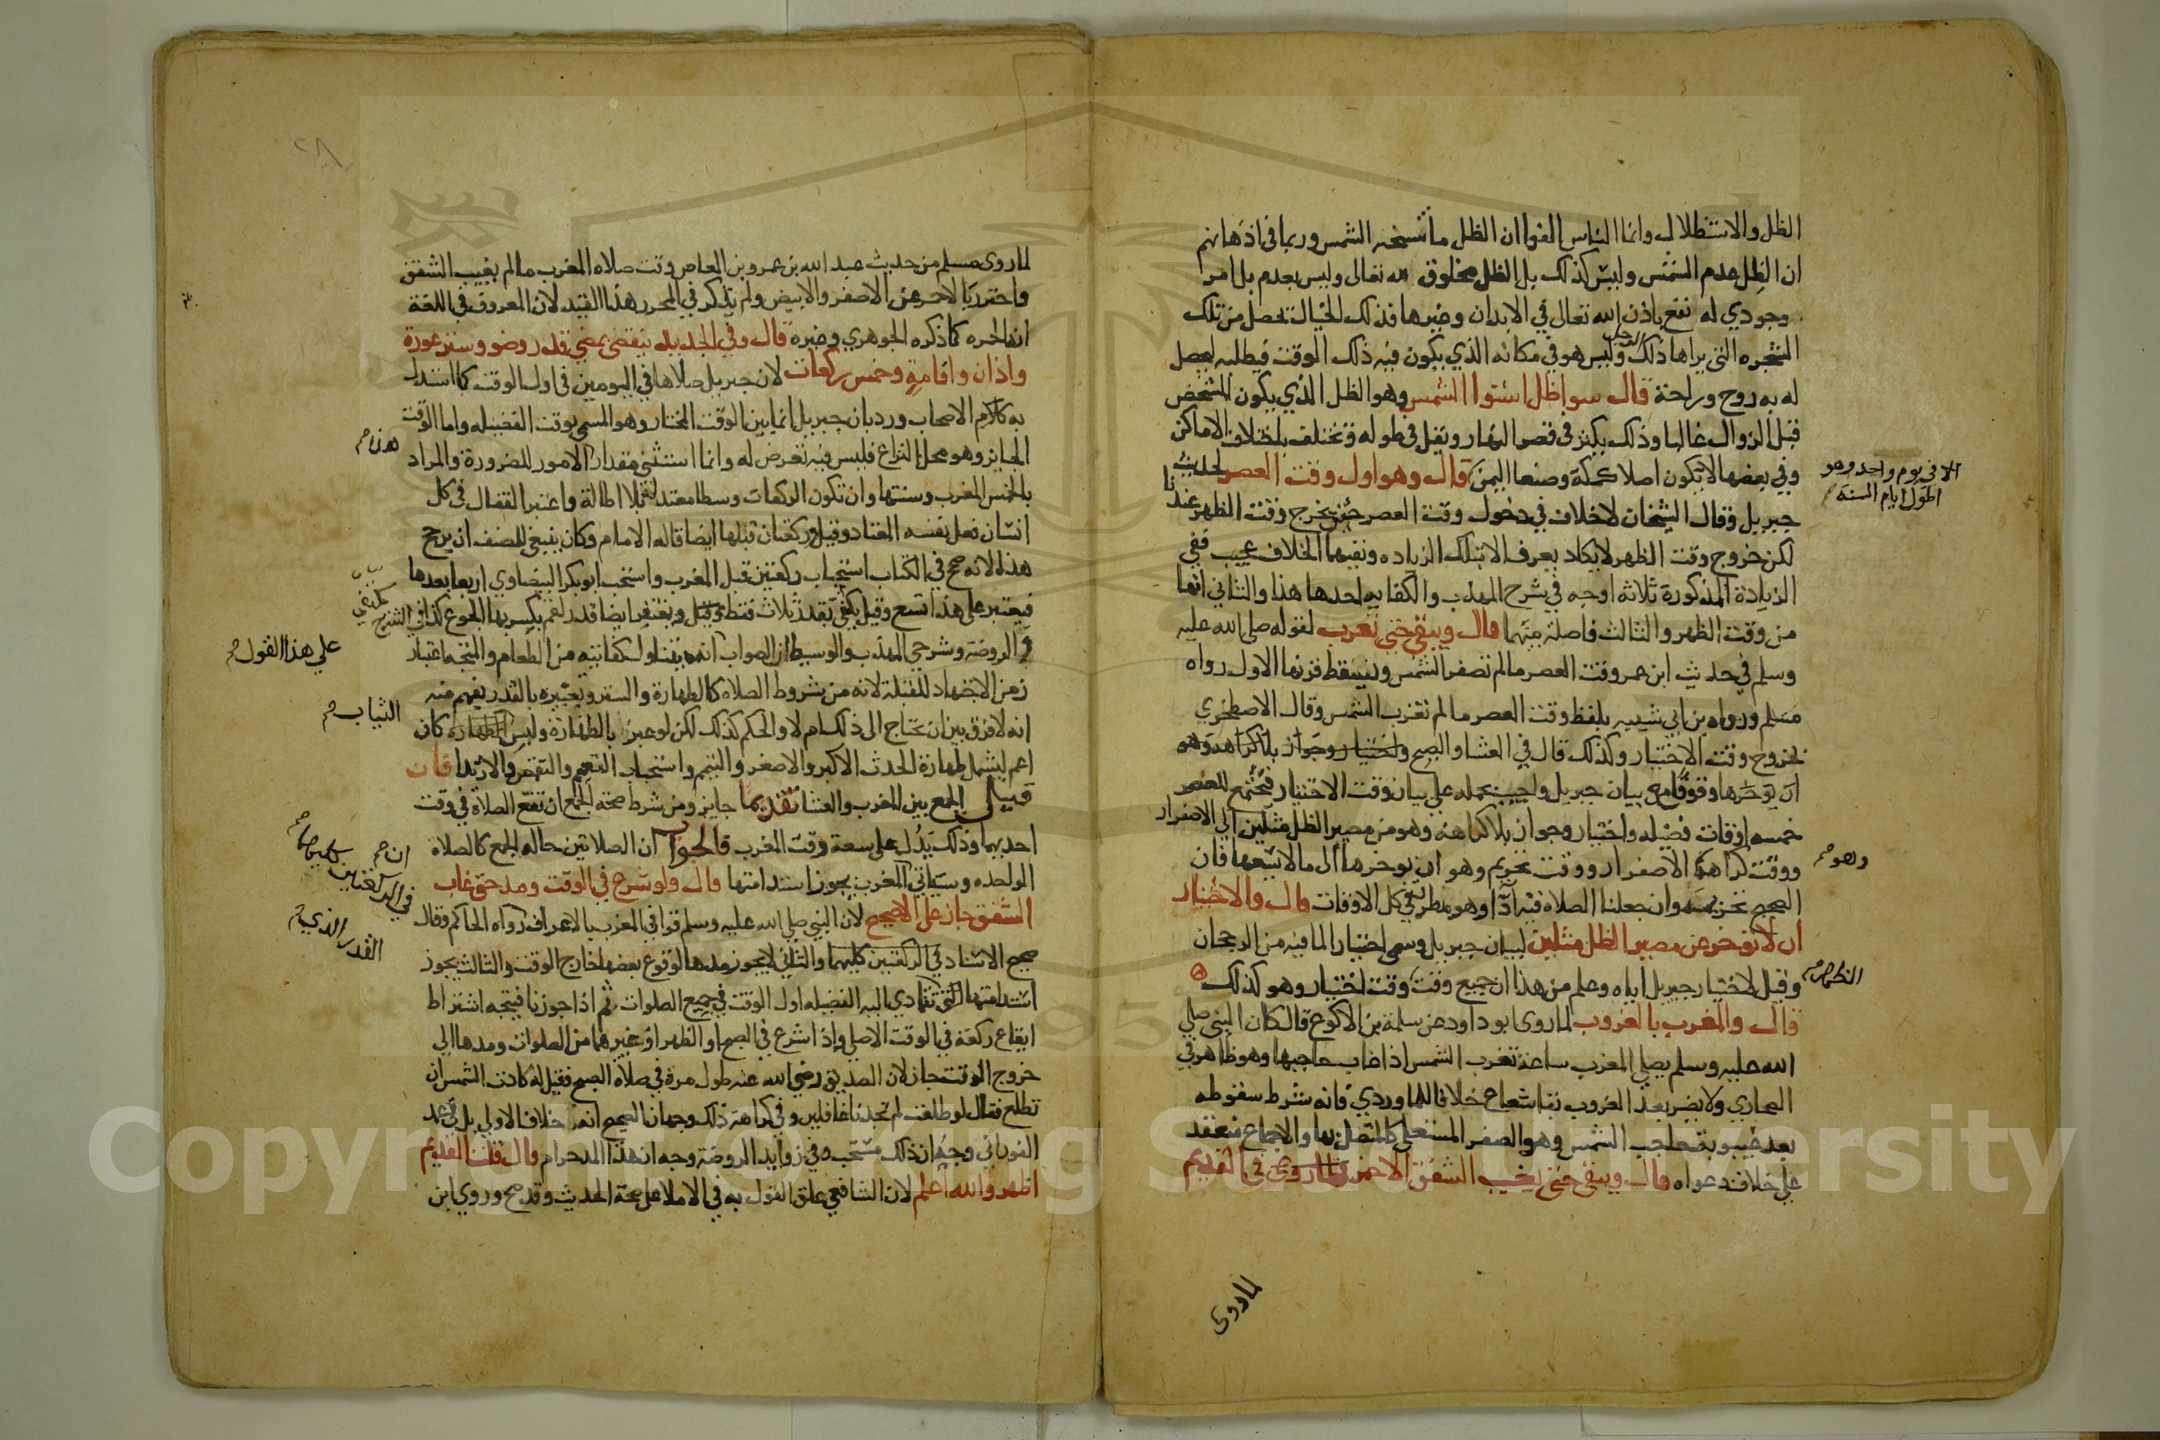 الظل والاستظلال وانما الناس الفوا ان الظل ما تنسخه الشمس وربما في اذهانهم
ان الظل عدم الشمس وليس كذلك بل الظل مخلوق لله تعالى وليس بعدم بل امر
وجودي له نفع باذن الله تعالى في الابدان وغيرها فذلك الخيال تحصل من تلك
الشجره التي يراها ذلك وليس هو في مكانه الذي يكون فيه ذلك الوقت فيطلبه ليحصل
له به روح وراحة قال سوا ظل استوا الشمس وهو الظل الذي يكون للشخص
قبل الزوال غالبا وذلك يكثر في قصر النهار ويقل في طوله وتختلف باختلاف الاماكن
وفي بعضها لا يكون اصلا كمكة وصنعا اليمن قال وهو اول وقت العصر لحديث
الا في يوم واحد وهو
اطول ايام السنة
جبريل وقال الشيخان لا خلاف في دخول وقت العصر حين يخرج وقت الظهر عندنا
لكن خروج وقت الظهر لا يكاد يعرف الا بتلك الزياده ونفيهما الخلاف عجيب ففي
الزيادة المذكورة ثلاثة اوجه في شرح المهذب والكفايه احدها هذا والثاني انها
من وقت الظهر والثالث فاصلة بينهما قال ويبقى حتى تغرب لقوله صلى الله عليه
وسلم في حديث ابن عمر وقت العصر ما لم تصفر الشمس ويسقط قرنها الاول رواه
مسلم ورواه بن ابي شيبه بلفظ وقت العصر ما لم تغرب الشمس وقال الاصطخري
يخروج وقت الاختيار وكذلك قال في العشا والصبح واختيار وجواز بلا كراهة وهو
ان يوخرها وقوفا مع بيان جبريل واجيب بحمله علي بيان وقت الاختيار فيجتمع للعصر
خمسه اوقات فضيله واختيار وجواز بلا كراهة وهو من مصير الظل مثلين الي الاصفرار
ووقت كراهة الاصفرار ووقت تحريم وهو ان يوخرها الى ما لا يسعها فان
وهو
الصحيح تحريمه وان جعلنا الصلاه فيه ادا وهو مطرد في كل الاوقات قال والاختيار
ان لا توخر عن مصير الظل مثلين لبيان جبريل وسمي اختيارا لما فيه من الرجحان
وقيل لاختيار جبريل اياه وعلم من هذا ان جميع وقت وقت اختيار وهو كذلك
الظهر
قال والمغرب بالغروب لما روى ابو داود عن سلمة بن الاكوع قال كان النبي صلي
الله عليه وسلم يصلي المغرب ساعة تغرب الشمس اذا غاب حاجبها وهو ظاهر في
البخاري ولا يضر بعد الغروب بقا شعاع خلافا للماوردي فانه شرط سقوطه
بعد غيبوبة حاجب الشمس وهو الصفر المستعلي كالمتصل بها والاجماع منعقد
علي خلاف دعواه قال ويبقى حتى يغيب الشفق الاحمر في القديم
لما روى
لما روى مسلم من حديث عبد الله بن عمرو بن العاص وقت صلاة المغرب ما لم يغيب الشفق
واحترز بالاحمر عن الاصفر والابيض ولم يذكر في المحرر هذا القيد لان المعروف في اللغة
انه الحمره كما ذكره الجوهري وغيره قال وفي الجديد ينقضي بمضي قدر وضو وستر عورة
واذان واقامة وخمس ركعات لان جبريل صلاها في اليومين في اول الوقت كما استدل
به كلام الاصحاب ورد بان جبريل انما بين الوقت المختار وهو المسمى بوقت الفضيله واما الوقت
الجايز وهو محل النزاع فليس فيه تعرض له وانما استثني مقدار الامور للضرورة والمراد
بالخمس المغرب وسنتها وان تكون الركعات وسطا معتدلة بلا اطالة واعتبر القفال في كل
انسان فعل نفسه المعتاد وقيل وركعتان قبلها ايضا قاله الامام وكان ينبغي للمصنف ان يرجح
هذا لانه صحح في الكتاب استحباب ركعتين قبل المغرب واستحب ابو بكر البيضاوي اربعا بعدها
فيعتبر على هذا تسع وقيل يكفي بقدر ثلاث فقط وقيل ويغتفر ايضا قدر لقم يكسر بها الجوع كذا في الشرح
في الروضة وشرحي المهذب والوسيط ان الصواب انه يتناول كفايته من الطعام والمتجه اعتبار
علي هذا القول
زمن الاجتهاد للقبلة لانه من شروط الصلاه كالطهارة والستر وتعبيره بالقدر يفهم منه
انه لا فرق بين ان يحتاج الى ذلك ام لا والحكم كذلك لكن لو عبر بالطهارة ولبس كان
الثياب
اعم ليشمل طهارة الحدث الاكبر والاصغر والتيمم واستحباب التعمم والتقمص والارتدا فان
قيل الجمع بين المغرب والعشا تقديما جايز ومن شرط صحة الجمع ان تقع الصلاة في وقت
احديهما وذلك يدل على سعة وقت المغرب فالجواب ان الصلاتين حاله الجمع كالصلاة
الواحده وسياتي المغرب يجوز استدامتها قال ولو شرع في الوقت ومد حتى غاب
الشفق جاز على الصحيح لان النبي صلى الله عليه وسلم قرا في المغرب بالاعراف رواه الحاكم وقال
صحيح الاسناد في الركعتين كليهما والثاني لا يجوز مدها لوقوع بعضها خارج الوقت والثالث يجوز
استدامتها الى تمادي اليه الفضيله اول الوقت في جميع الصلوات ثم اذا جوزنا فيتجه اشتراط
ايقاع ركعة في الوقت الاصلي واذا شرع في الصبح او الظهر او غيرهما من الصلوات ومدها الي
خروج الوقت جاز لان الصديق رضي الله عنه طول مرة في صلاة الصبح فقيل له كادت الشمس ان
تطلع فقال لو طلعت لم تجدنا غافلين وفي كراهة ذلك وجهان الصحيح انه خلاف الاولي بل في عمد
الفوراني وجه ان ذلك مستحب وفي زوايد الروضة وجه ان هذا المد حرام قال قلت القديم
اظهر والله اعلم لان الشافعي علق القول به في الاملا على صحة الحديث وقد صح وروي ابن